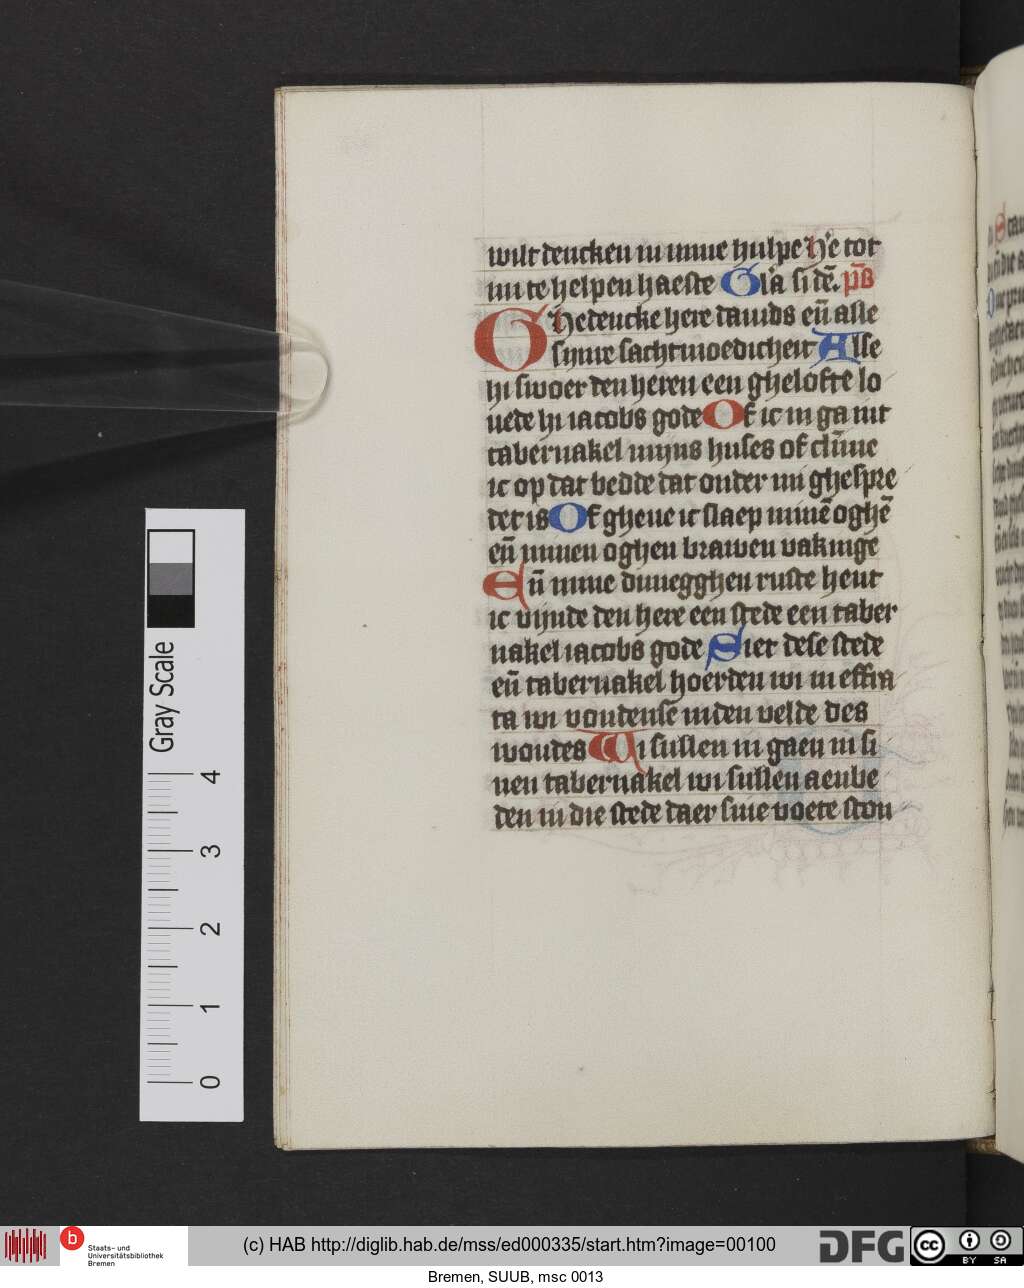 wilt dencken in mine hulpe He tot
mi te helpen haeste Gl'a si dē. p̄s
Ghedencke here dauids eñ alle
sijnre sachtmoedicheit Alse
hi swoer den heren een ghelofte lo
uede hi iacobs gode Of ic in ga int
tabernakel mijns huses of clīme
ic op dat bedde dat onder mi ghespre
det is Of gheue ic slaep minē oghē
eñ minen oghen brawen vakinge
Eñ mine dinnegghen ruste hent
ic vijnde den here een stede een taber
nakel iacobs gode Siet dese stede
eñ tabernakel hoerden wi in effra
ta wi vondense inden velde des
woudes Wi sullen in gaen in si
nen tabernakel wi sullen aenbe
den in die stede daer sine voete ston
Gray Scale
4
3
2
1
0
b
Staats- und
Universitätsbibliothek
Bremen
(c) HAB http://diglib.hab.de/mss/ed000335/start.htm?image=00100
DFG
cc
BY SA
Bremen, SUUB, msc 0013